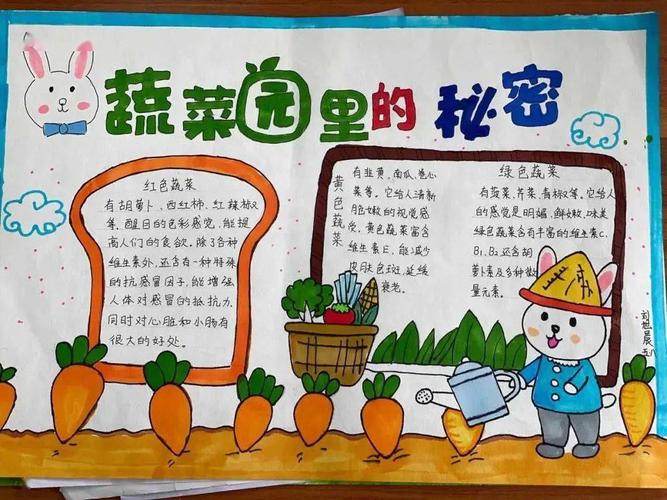 蔬菜园里的秘密
红色蔬菜
有胡萝卜、西红柿、红辣椒
等。醒目的色彩感觉,能提
高人们的食欲。除了各种
维生素外,还含有一种特殊
的抗感冒因子,能增强
人体对感冒的抵抗力,
同时对心脏和小肠有
很大的好处。
黄色蔬菜
有韭黄、南瓜、卷心
菜等。它给人清新
脆嫩的视觉感
受,黄色蔬菜富含
维生素E,能减少
皮肤色斑,延缓
衰老。
绿色蔬菜
有菠菜、芹菜、青椒等。它给人
的感觉是明媚、鲜嫩、味美
绿色蔬菜含有丰富的维生素C、
B₁、B₂还含胡
萝卜素及多种微
量元素。